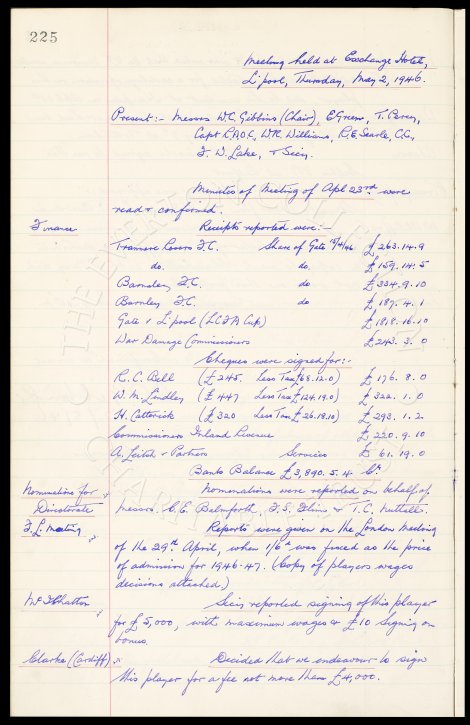 225
Meeting held at Exchange Hotel,
L'pool, Thursday, May 2, 1946.
Present:- Messrs W.C. Gibbins (Chair), E Green, T. Percy,
Capt R.A.O.C, W.R. Williams, R.E. Searle, C.C.,
F. W. Lake, & Secy.
Minutes of Meeting of Apl 23rd were
read & confirmed.
Finance
Receipts reported were:-
Tranmere Rovers F.C. Share of Gate £263.14.9
do. do. £159.14.5
Barnsley F.C. do £334.9.10
Burnley F.C. do £187.4.1
Gate v L'pool (LCFA Cup) £1818.16.10
War Damage Commissioners £243.3.0
Cheques were signed for:-
R.C. Bell (£245. Less Tax £68.12.0) £176.8.0
W. M. Lindley (£447 Less Tax £124.19.0) £322.1.0
H. Catterick (£320 Less Tax £26.18.10) £293.1.2
Commissioners Inland Revenue £220.9.10
A. Leitch & Partners Services £61.19.0
Banks Balance £3,890.5.4 Cr.
Nominations for Directorate
Nominations were reported on behalf of
Messrs. C.E. Balmforth, & T.C. Nuttall.
F.L. Meeting
Reports were given on the London Meeting
of the 29th April, when 1/6d was fixed as the price
of admission for 1946-47. (Copy of players wages
decisions attached.)
Secy reported signing of this player
for £5,000, with maximum wages & £10 Signing on
bonus.
Clarke (Cardiff)
Decided that we endeavour to sign
this player for a fee not more than £4,000.